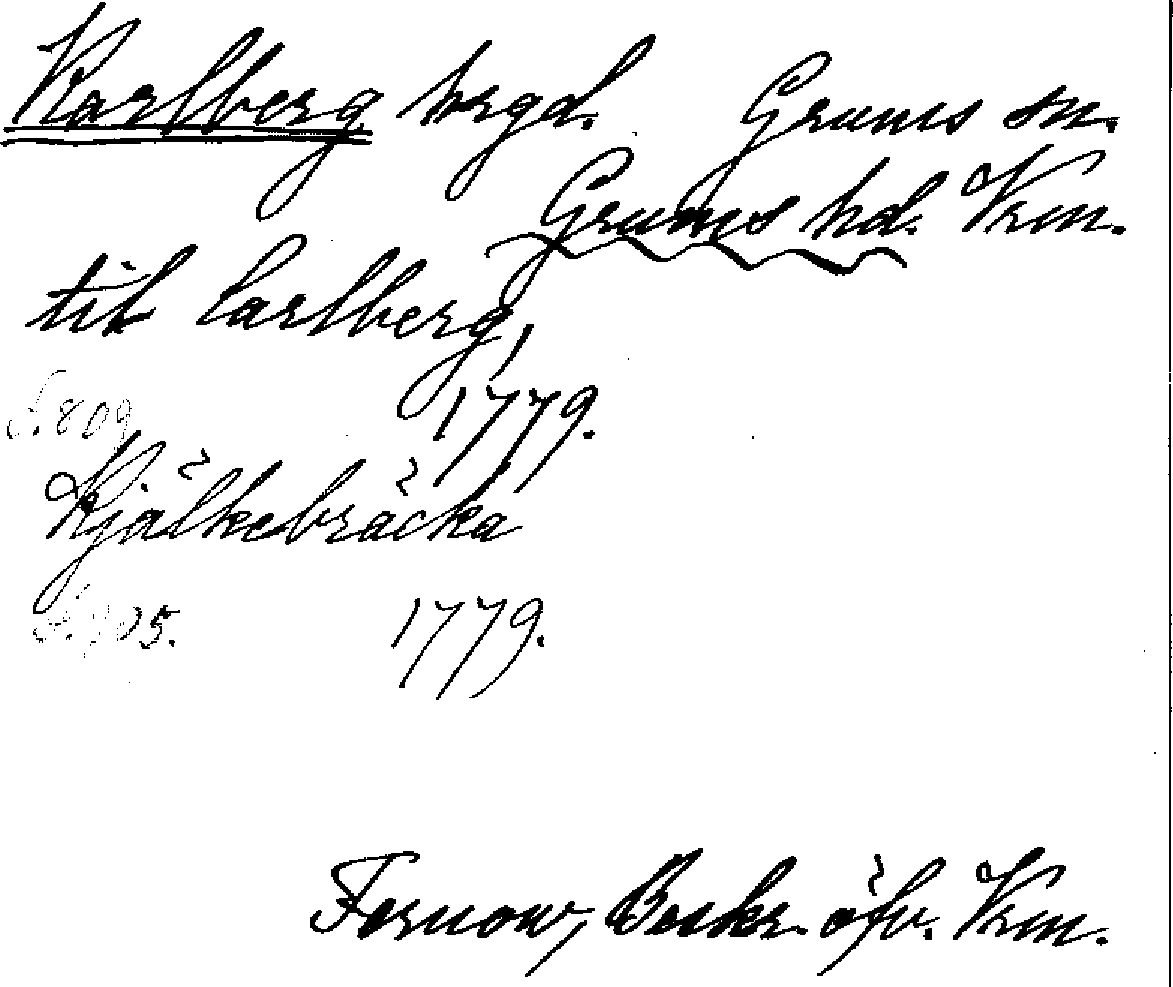 Karlberg hrgd. Grums sn.
Grums hd. Vrm.
til Carlberg,
S. 809 1779.
Kjälkebräcka
1779.
Fernow, Beskr. öfv. Vrm.